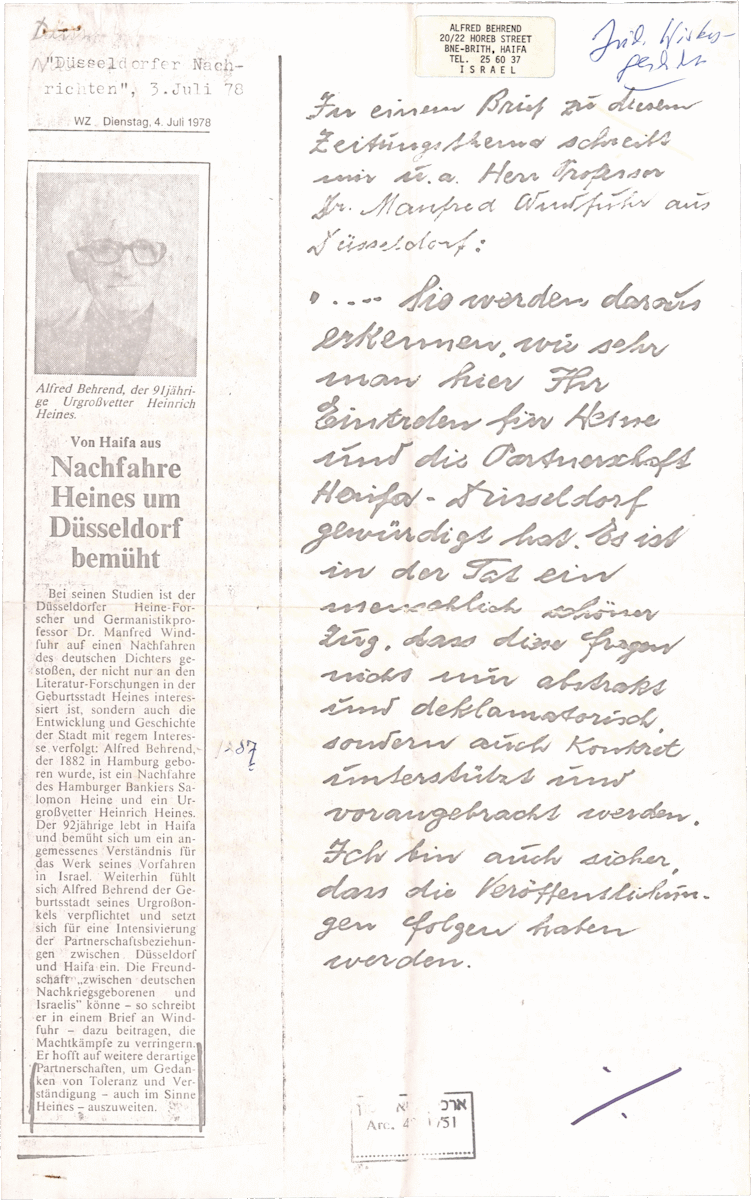 "Düsseldorfer Nach-
richten", 3.Juli 78
WZ Dienstag, 4. Juli 1978
Alfred Behrend, der 91jähri-
ge Urgroßvetter Heinrich
Heines.
Von Haifa aus
Nachfahre
Heines um
Düsseldorf
bemüht
Bei seinen Studien ist der
Düsseldorfer Heine-For-
scher und Germanistikpro-
fessor Dr. Manfred Wind-
fuhr auf einen Nachfahren
des deutschen Dichters ge-
stoßen, der nicht nur an den
Literatur-Forschungen in der
Geburtsstadt Heines interes-
siert ist, sondern auch die
Entwicklung und Geschichte
der Stadt mit regem Interes-
se verfolgt: Alfred Behrend,
der 1882 in Hamburg gebo-
ren wurde, ist ein Nachfahre
des Hamburger Bankiers Sa-
lomon Heine und ein Ur-
großvetter Heinrich Heines.
Der 92jährige lebt in Haifa
und bemüht sich um ein an-
gemessenes Verständnis für
das Werk seines Vorfahren
in Israel. Weiterhin fühlt
sich Alfred Behrend der Ge-
burtsstadt seines Urgroßon-
kels verpflichtet und setzt
sich für eine Intensivierung
der Partnerschaftsbeziehun-
gen zwischen Düsseldorf
und Haifa ein. Die Freund-
schaft „zwischen deutschen
Nachkriegsgeborenen und
Israelis" könne – so schreibt
er in einem Brief an Wind-
fuhr – dazu beitragen, die
Machtkämpfe zu verringern.
Er hofft auf weitere derartige
Partnerschaften, um Gedan-
ken von Toleranz und Ver-
ständigung – auch im Sinne
Heines – auszuweiten.
87
ALFRED BEHREND
20/22 HOREB STREET
BNE-BRITH, HAIFA
TEL. 25 60 37
ISRAEL
In einem Brief zu diesem
Zeitungsthema schreibt
mir u.a. Herr Professor
Dr. Manfred Windfuhr aus
Düsseldorf:
".... Sie werden daraus
erkennen, wie sehr
man hier Ihr
Eintreden für Heine
und die Partnerschaft
Haifa - Düsseldorf
gewürdigt hat. Es ist
in der Tat ein
menschlich schöner
Zug, dass diese fragen
nicht nur abstrakt
und deklamatorisch,
sondern auch Konkret
unterstützt und
vorangebracht werden.
Ich bin auch sicher,
dass die Veröffentlichun-
gen folgen haben
werden.
Arc. /51